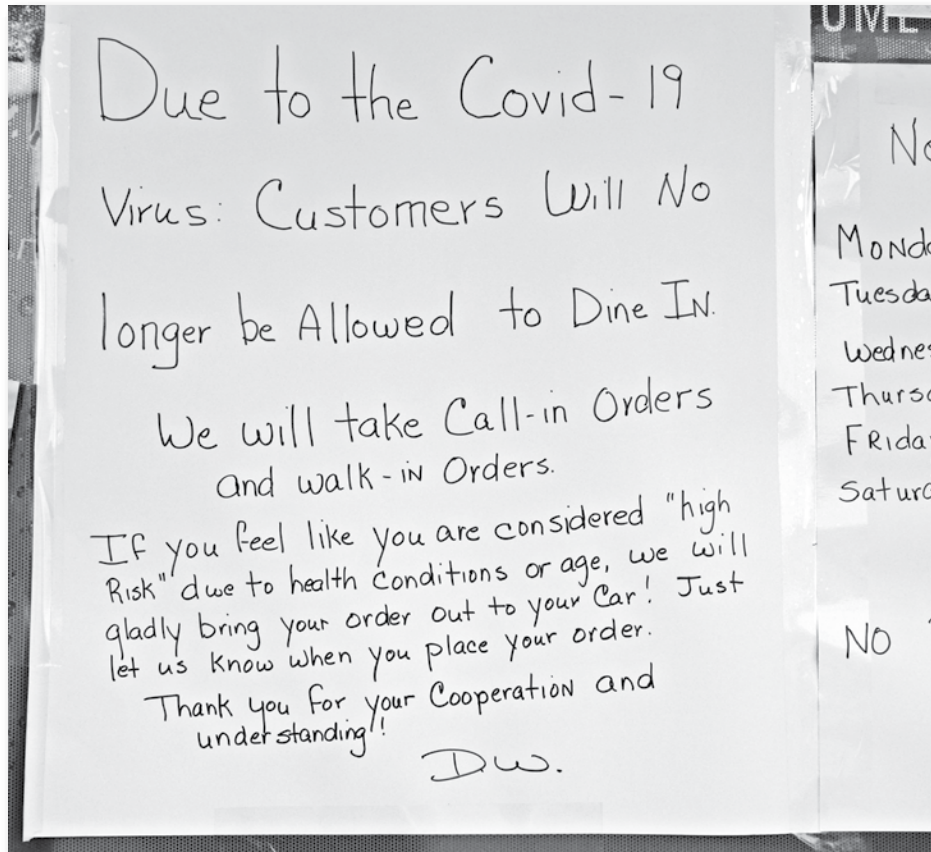 Due to the Covid-19
Virus: Customers Will No
longer be Allowed to Dine IN.
We will take Call-in Orders
and walk-iN Orders.
If you feel like you are considered "high
Risk" due to health Conditions or age, we will
gladly bring your order out to your Car! Just
let us know when you place your order.
Thank you for your CooperatioN and
understanding!!
D.W.
NO